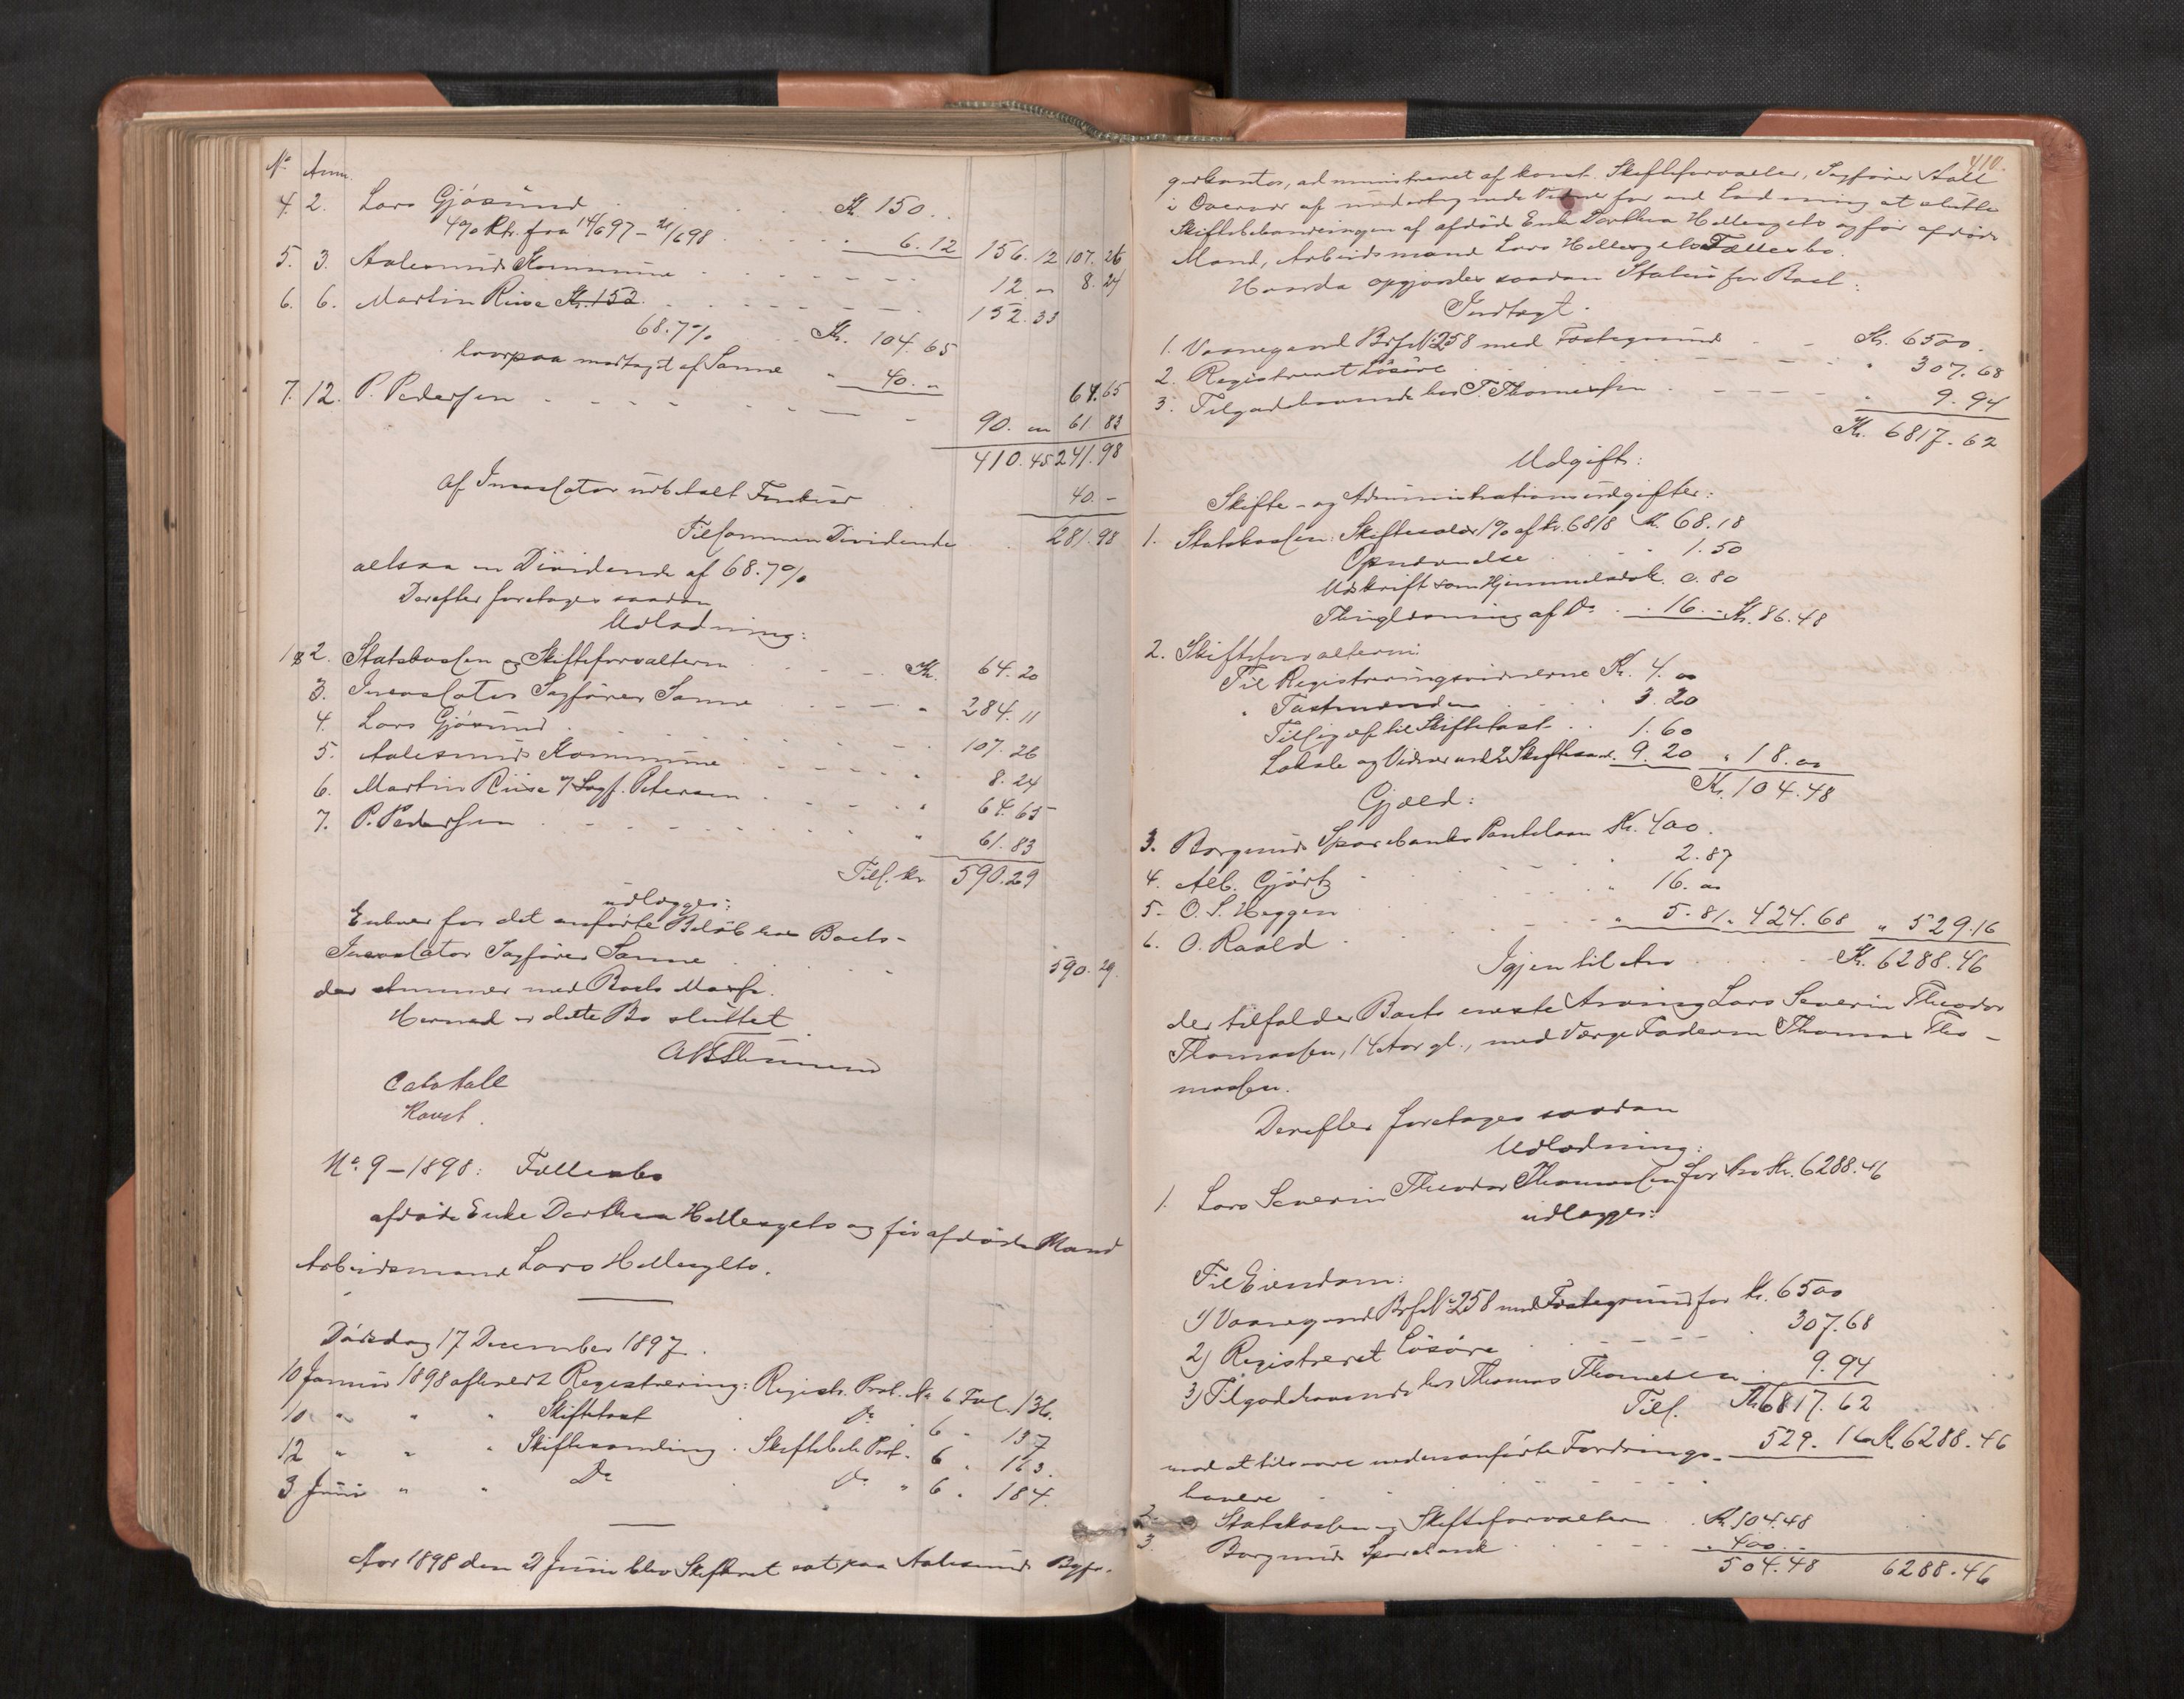 No Anm.
4. 2. Lars Gjøsund . . Kr. 150. .
4% Rt. fra 14/6 97 – 21/6 98 . . . . . 6.12 156.12 107.26
5. 3. Aalesunds Kommune . . . . . 12 „ 8.24
6. 6. Martin Riise Kr. 152. . . . . 152.33
68.7% . . Kr. 104.65
hvorpaa modtaget af Sanne „ 40. „ 64.65
7. 12. P. Pedersen . . . . . 90. „ 61 83
410.45 241.98
Af Incassator udbetalt 40. –
Tilsammen Dividende . 281.98
altsaa en Dividende af 68.7%
Derefter foretages saadan
Udlodning:
1 & 2. Statskassen og Skifteforvalteren . . . Kr. 64.20
3. Incassator Sagfører Sanne . . . „ 284.11
4. Lars Gjøsund . . . . . 107.26
5. Aalesunds Kommune . . . . . 8.24
6. Martin Riise v/ Sagf. Petersen . . . . „ 64.65
7. P. Pedersen . . . . . „ 61.83
Tils. kr. 590.29
udlægges:
Enhver for det anførte Beløb hos Boets
Incassator Sagfører Sanne . . . . . 590.29.
der stemmer med Boets Masse.
Hermed er dette Bo sluttet.
Cato Aall
Konst.
No. 9 – 1898: Fællesbo
afdøde Enke Dorthea Hellesylts og før afdøde Mand
Arbeidsmand Lars Hellesylts.
Dødsdag 17 December 1897.
10 Januar 1898 afholdt Registrering: Registr. Prot. No 6 Fol. 136.
10 „ „ „ Skiftetaxt . Do . 6 „ 137
12 „ „ „ Skiftesamling . Skiftebeh. Prot. 6 „ 163.
3 Juni „ „ Do Do „ 6 „ 184.
Aar 1898 den 21 Juni blev Skifteret sat paa Aalesunds Byfo-
410.
gedkontor, administreret af konst. Skifteforvalter, Sagfører Aall
i Overvær af undertegnede Vidner for ved Lodning at slutte
Skiftebehandlingen af afdøde Enke Dorthea Hellesylts og før afdøde
Mand, Arbeidsmand Lars Hellesylts Fællesbo.
Herunder opgjordes saadan Status for Boet:
Indtægt.
1. Vaanegaard Brf. No 258 med Festegrund . – Kr. 6500.
2. Registreret Løsøre . . . . . „ 307.68
3. Tilgodehavende hos T. Thomassen . . . . „ 9.94
Kr. 6817.62
Udgift:
Skifte- og Administrationsudgifter:
1. Statskassen: Skiftesalær 1% af kr. 6818 Kr. 68.18
Opnævnelse . . . 1.50
Udskrift som Hjemmelsdok. 0.80
Thinglæsning af Do . . 16. – Kr. 86.48
2. Skifteforvalteren:
Til Registreringsvidnerne Kr. 4. „
„ Taxtmændene . . 3.20
Tilsigelse til Skiftetaxt . . 1.60
Lokale og Vidner ved 2 Skiftesaml. 9.20 „ 18. „
Kr. 104.48
Gjæld:
3. Borgunds Sparebanks Pantelaan Kr. 400.
4. Alb. Gjørtz . . . . 2.87
5. O. S. Heggen . . . . „ 16. „
6. O. Raald . . . . „ 5.81 „ 424.68 „ 529.16
Igjen til Arv . . . . Kr. 6288.46
der tilfalder Boets eneste Arving Lars Severin Theodor
Thomassen, 14 Aar gl., med Værge Faderen Thomas Tho-
massen.
Derefter foretages saadan
Udlodning:
1. Lars Severin Theodor Thomassen for Arv Kr. 6288.46
udlægges:
Til Eiendom:
1) Vaanegaard Brf. No 258 med Festegrund for Kr. 6500
2) Registreret Løsøre . . . . . 307.68
3) Tilgodehavende hos Thomas Thomassen . 9.94
Tils. Kr. 6817.62
mod at tilsvare nedenanførte Fordrings- 529.16 Kr. 6288.46
havere . . . . .
2. Statskassen og Skifteforvalteren . Kr. 104.48
3. Borgunds Sparebank . . . . „ 400. –
504.48 6288.46